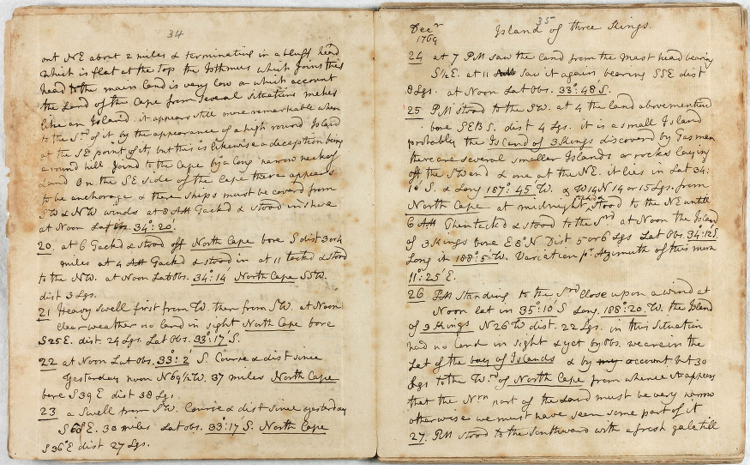 34
out NE about 2 miles & terminating in a bluff head
which is flat at the top the Isthmus which joins this
head to the main land is very low on which account
the Land of the Cape from several situations makes
like an Island. it appears still more remarkable when
to the Sd of it by the appearance of a high round Island
at the SE point of it, but this is likewise a deception being
a round hill joind to the Cape by a long narrow neck of
Land on the SE side of the Cape there appears
to be anchorage & there ships must be coverd from
SW & NW winds at 8 Gackd & stood in shore
at Noon Lat obs. 34°:20.
20. at 6 Gackd & stood off North Cape bore S dist 3 or 4
miles at 4 Gackd & stood in at 11 tackd & stood
to the NW. at Noon Lat obs. 34°:14' North Cape SSW.
dist 3 Lgs.
21 Heavy Swell first from W. then from SW. at Noon
clear weather no land in sight North Cape bore
S25E. dist 24 Lgs. Lat Obs. 33°:17' S.
22 at Noon Lat Obs. 33°:2' S. Course & dist since
Yesterday noon N69½W. 37 miles North Cape
bore S39E dist 38 Lgs.
23 a Swell from SW. Course & dist since yesterday
S 60°E. 30 miles Lat obs. 33:17 S. North Cape
S36°E dist 27 Lgs.
35
Decr Island of three Kings.
1769
24 at 7 PM saw the land from the mast head bearing
S½E. at 11 saw it again bearing SSE dist
8 Lgs. at Noon Lat Obs. 33°:48 S.
25 PM stood to the SW. at 4 the land abovementiond
bore SEBS. dist 4 Lgs. it is a small Island
probably the Island of 3 Kings discoverd by Gasman
there are several smaller Islands or rocks laying
off the SW end & one at the NE. it lies in Lat 34:
10' S. & Long 187°:45 W. & W14N 14 or 15 Lgs. from
North Cape at midnight stood to the NE until
6 Ghen tackd & stood to the Sd at Noon the Island
of 3 Kings bore E8°N Dist 5 or 6 Lgs Lat Obs. 34:12 S.
Long in 188°:5 W. Variation pr Azimuth of this morn
11°:25' E.
26 PM Standing to the Sd Close upon a wind at
Noon Lat in 35°:10' S Long. 188°:20 W. the Island
of 3 Kings N26W dist. 22 Lgs. in this situation
had no land in sight & yet by obs. we are in the
Lat of the bay of Islands & by my account but 30
Lgs to the Wd of North Cape from whence it appears
that the Nrn part of the Land must be very narrow
otherwise we must have seen some part of it
27. PM stood to the Southward with a fresh gale till